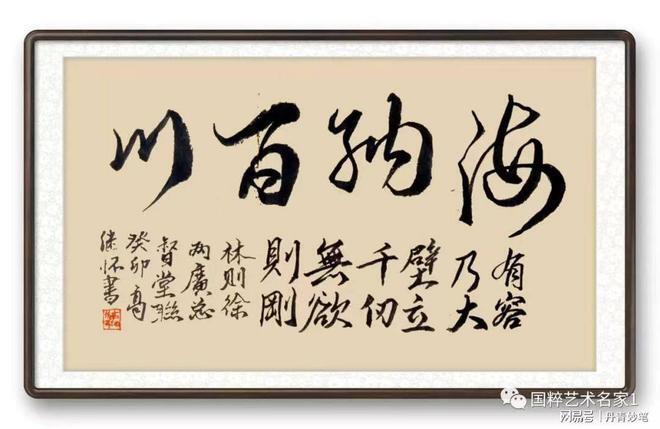 海納百川
有容
乃大
壁立
千仞
無欲
則剛
林则徐
两廣总
督堂聯
癸卯高
继怀書
国粹艺术名家1
网易号 | 丹青妙笔